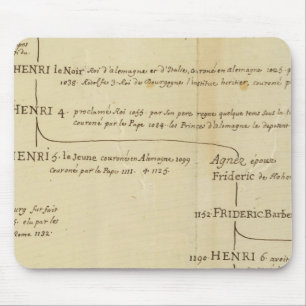 HENRI le Noir Roi d'Alemagne et d'Italie, couroné en Alemagne 1025.
1038. Rodolfe 3. Roi des Bourgogne l'institue heritier, couroné
HENRI 4. proclamé Roi 1055 par son pere regne quelque tems sous la
couroné par les Pape 1084. les Princes d'Alemagne le deposent
HENRI 5. le Jeune couroné en Alemagne 1099
couroné par le Pape 1111. 1125.
Agnez epouse
Frideric de Hohen
bourg fut fait
5. elu par les
Rome 1132.
1152 FRIDERIC Barbe
1190 HENRI 6 avoit